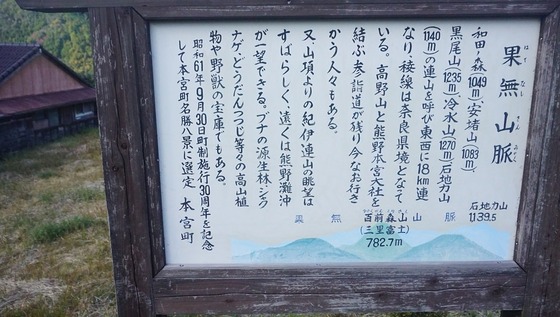 果無山脈
はてなしさんみゃく
和田ノ森(1049m)、安堵山(1083m)、
黒尾山(1235m)、冷水山(1270m)石地力山
(1140m)の連山を呼び東西に18km連
なり稜線は奈良県境となって
いる。高野山と熊野本宮大社を
結ぶ、参詣道が残り今なお行き
かう人々もある。
又、山頂よりの紀伊連山の眺望は
すばらしく、遠くは熊野灘沖
が一望できる。ブナの源生林、シャク
ナゲ、どうだんつつじ等々の高山植
物や野獣の宝庫でもある。
昭和61年9月30日町制施行30周年を記念
して本宮町名勝八景に選定 本宮町
石地力山
1139.5
果無山脈
百前森山
(三里富士)
782.7m